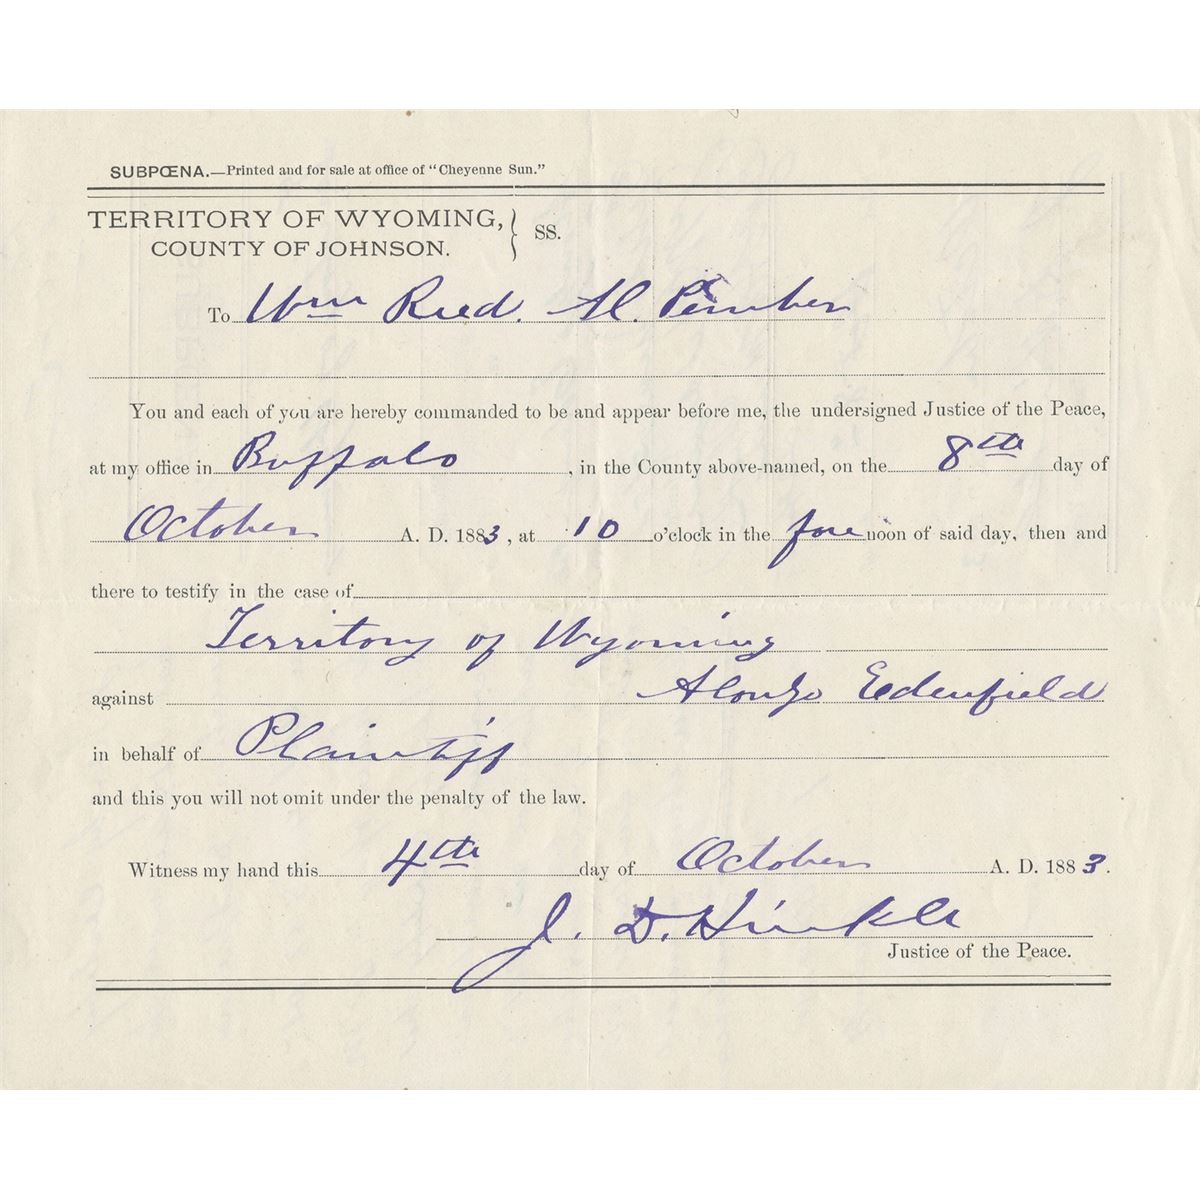 SUBPŒNA.—Printed and for sale at office of "Cheyenne Sun."
TERRITORY OF WYOMING, } SS.
COUNTY OF JOHNSON.
To Wm Reed. Al. Pember
You and each of you are hereby commanded to be and appear before me, the undersigned Justice of the Peace,
at my office in Buffalo, in the County above-named, on the 8th day of
October A. D. 1883, at 10 o'clock in the fore noon of said day, then and
there to testify in the case of
Territory of Wyoming
against Alonzo Edenfield
in behalf of Plaintiff
and this you will not omit under the penalty of the law.
Witness my hand this 4th day of October A. D. 1883.
J. D. Hinkle
Justice of the Peace.